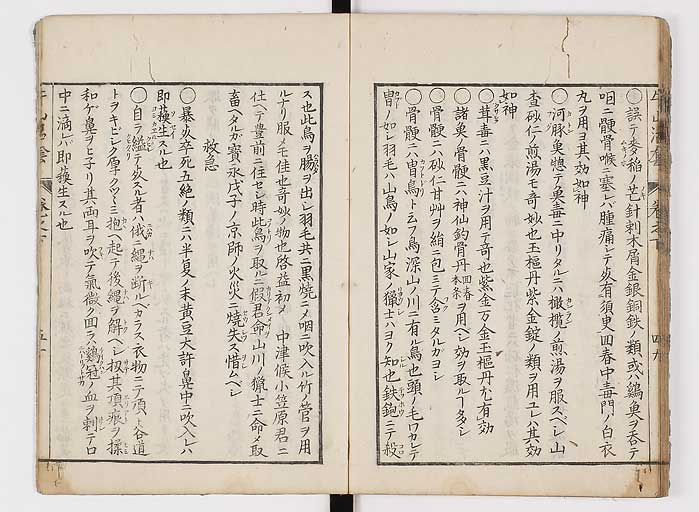 〇誤テ麥稲ノ芒針刺木屑金銀銅鉄ノ類或ハ鷄臭ヲ呑テ
咽ニ骾骨喉ニ塞レバ腫痛シテ死有須臾回春中毒門ノ白衣
丸ヲ用ヨ其効如神
〇河豚臭惣テノ臭毒ニ中リタルニハ橄欖ノ煎湯ヲ服スベシ山
査砂仁ノ煎湯モ奇妙也玉樞丹紫金錠ノ類ヲ用ユレハ其効
如神
〇茸毒ニハ黒豆汁ヲ用テ奇也紫金万金玉樞丹尤有効
〇諸臭ノ骨骾ニハ神仙鈎骨丹回春本条ヲ用ベシ効ヲ取ルータシ
〇骨骾ニハ砂仁甘艸ヲ絹ニ包ミテ含ミタルガヨシ
〇骨骾ニハ冑鳥ト云フ鳥深山ノ川ニ有ル鳥也頭ノ毛ワカレテ
冑ノ如シ羽毛ハ山鳥ノ如シ山家ノ獵士ハヨク知也鉄鉋ニテ殺
ス也此鳥ヲ腸ヲ出シ羽毛共ニ黒焼ニメ咽ニ吹入ル竹ノ管ヲ用
ルナリ服メモ佳也奇妙ノ物也啓益初メ中津候小笠原君ニ
仕ヘテ豊前ニ住セシ時此鳥ヲ取ルニ假君命山川ノ獵士ニ命メ取
畜ヘタルガ寳永戊子ノ京師ノ火災ニ焼失ス惜ムベシ
救急
〇暴死卒死五絶ノ類ニハ半夏ノ末黄豆大許鼻中エ吹入レハ
即蘓生スル也
〇自ラ縊テ死スル者ハ俄ニ縄ヲ断ルベカラス衣物ニテ項ト谷道
トヲキビシク厚クツヽミ抱ヘ起テ後縄ヲ解ヘシ扨其項痕ヲ揉
和ゲ鼻ヲヒ子リ其両耳ヲ吹テ氣微ク回ラハ鷄冠ノ血ヲ刺テロ
中ニ滴レバ即蘓生スル也